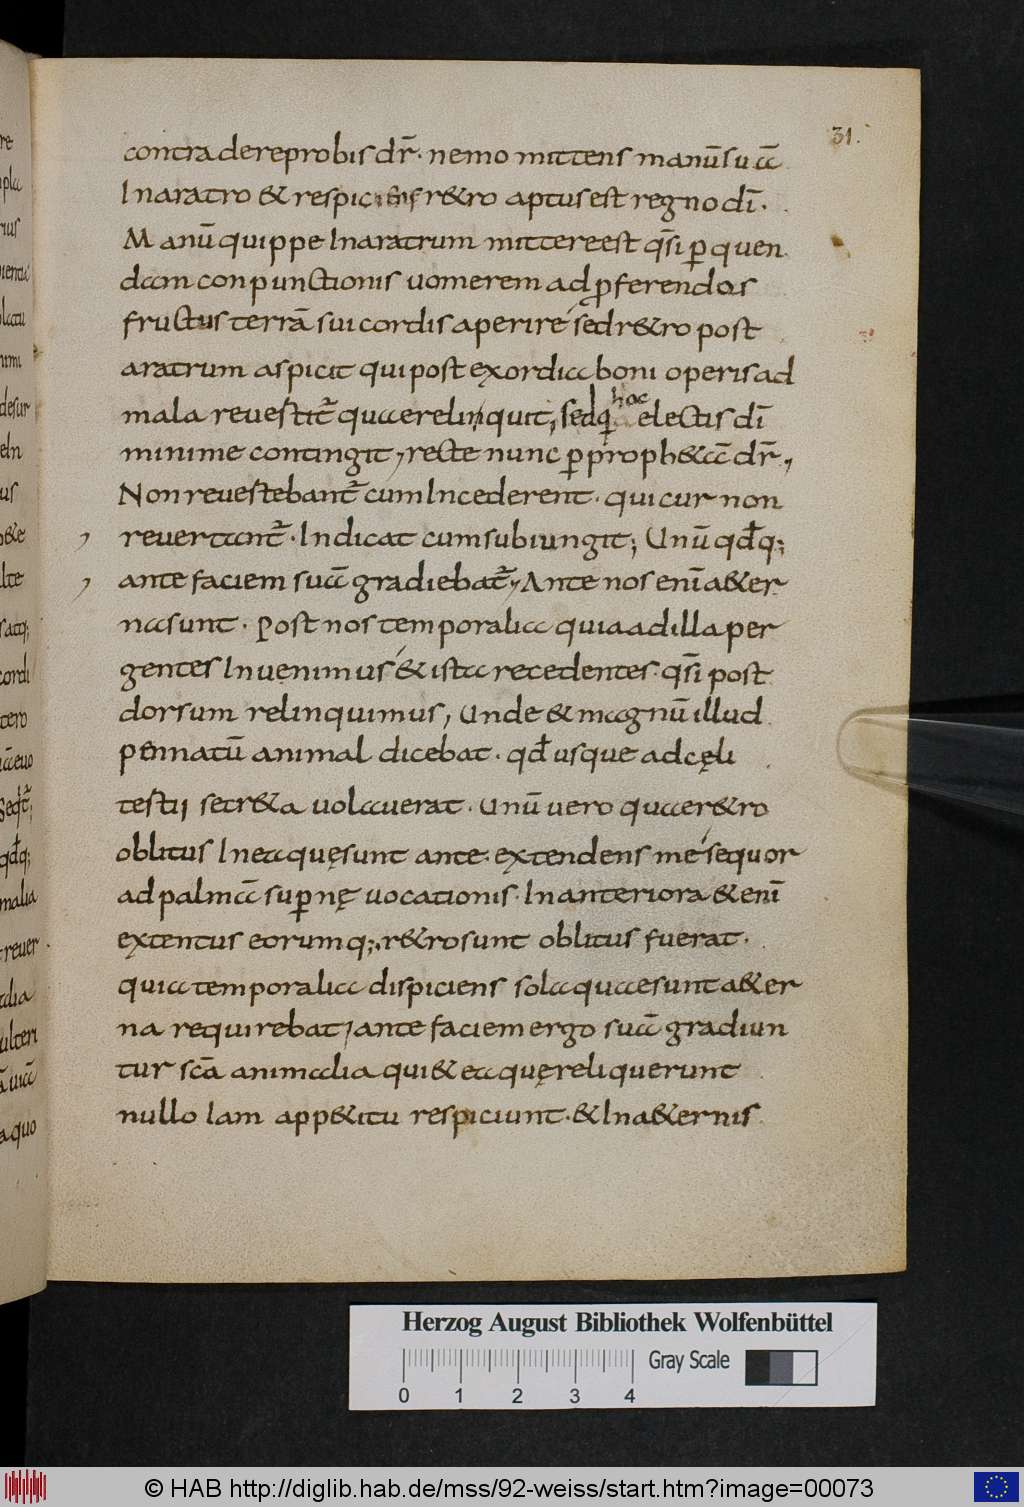 31.
contra de reprobis dr̄. nemo mittens manū suā
In aratro & respiciens r&ro aptus est regno dī.
Manū quippe In aratrum mittere est qsī p̲ quen
dam conpunctionis uomerem ad p̲ferendos
fructus terrā sui cordis aperire sed r&ro post
aratrum aspicit qui post exordia boni operis ad
mala reuertit̄ quae relinquit; sed q̲ hoc electis dī
minime contingit, recte nunc p̲ proph&ā dr̄,
Non reuertebant̄ cum Incederent. qui cur non
reuertant̄. Indicat cum subiungit; Unū qđq;
ante faciem suā gradiebat̄, Ante nos enī a&er
na sunt. Post nos temporalia quia ad illa per
gentes Inuenimus & ista recedentes. qsī post
dorsum relinquimus, Unde & magnū illud
pennatū animal dicebat. qđ usque ad cęli
testii secr&a uolauerat. Unū uero quae r&ro
oblitus In ea quę sunt ante. extendens me sequor
ad palmā sup̲nę uocationis. In anteriora & enī
extentus eorumq; r&ro sunt oblitus fuerat.
quia temporalia dispiciens sola quae sunt a&er
na requirebat, ante faciem ergo suā gradiun
tur scā animalia qui & ea quę reliquerunt
nullo Iam app&itu respiciunt. & In a&ernis
Herzog August Bibliothek Wolfenbüttel
Gray Scale
0 1 2 3 4
© HAB http://diglib.hab.de/mss/92-weiss/start.htm?image=00073